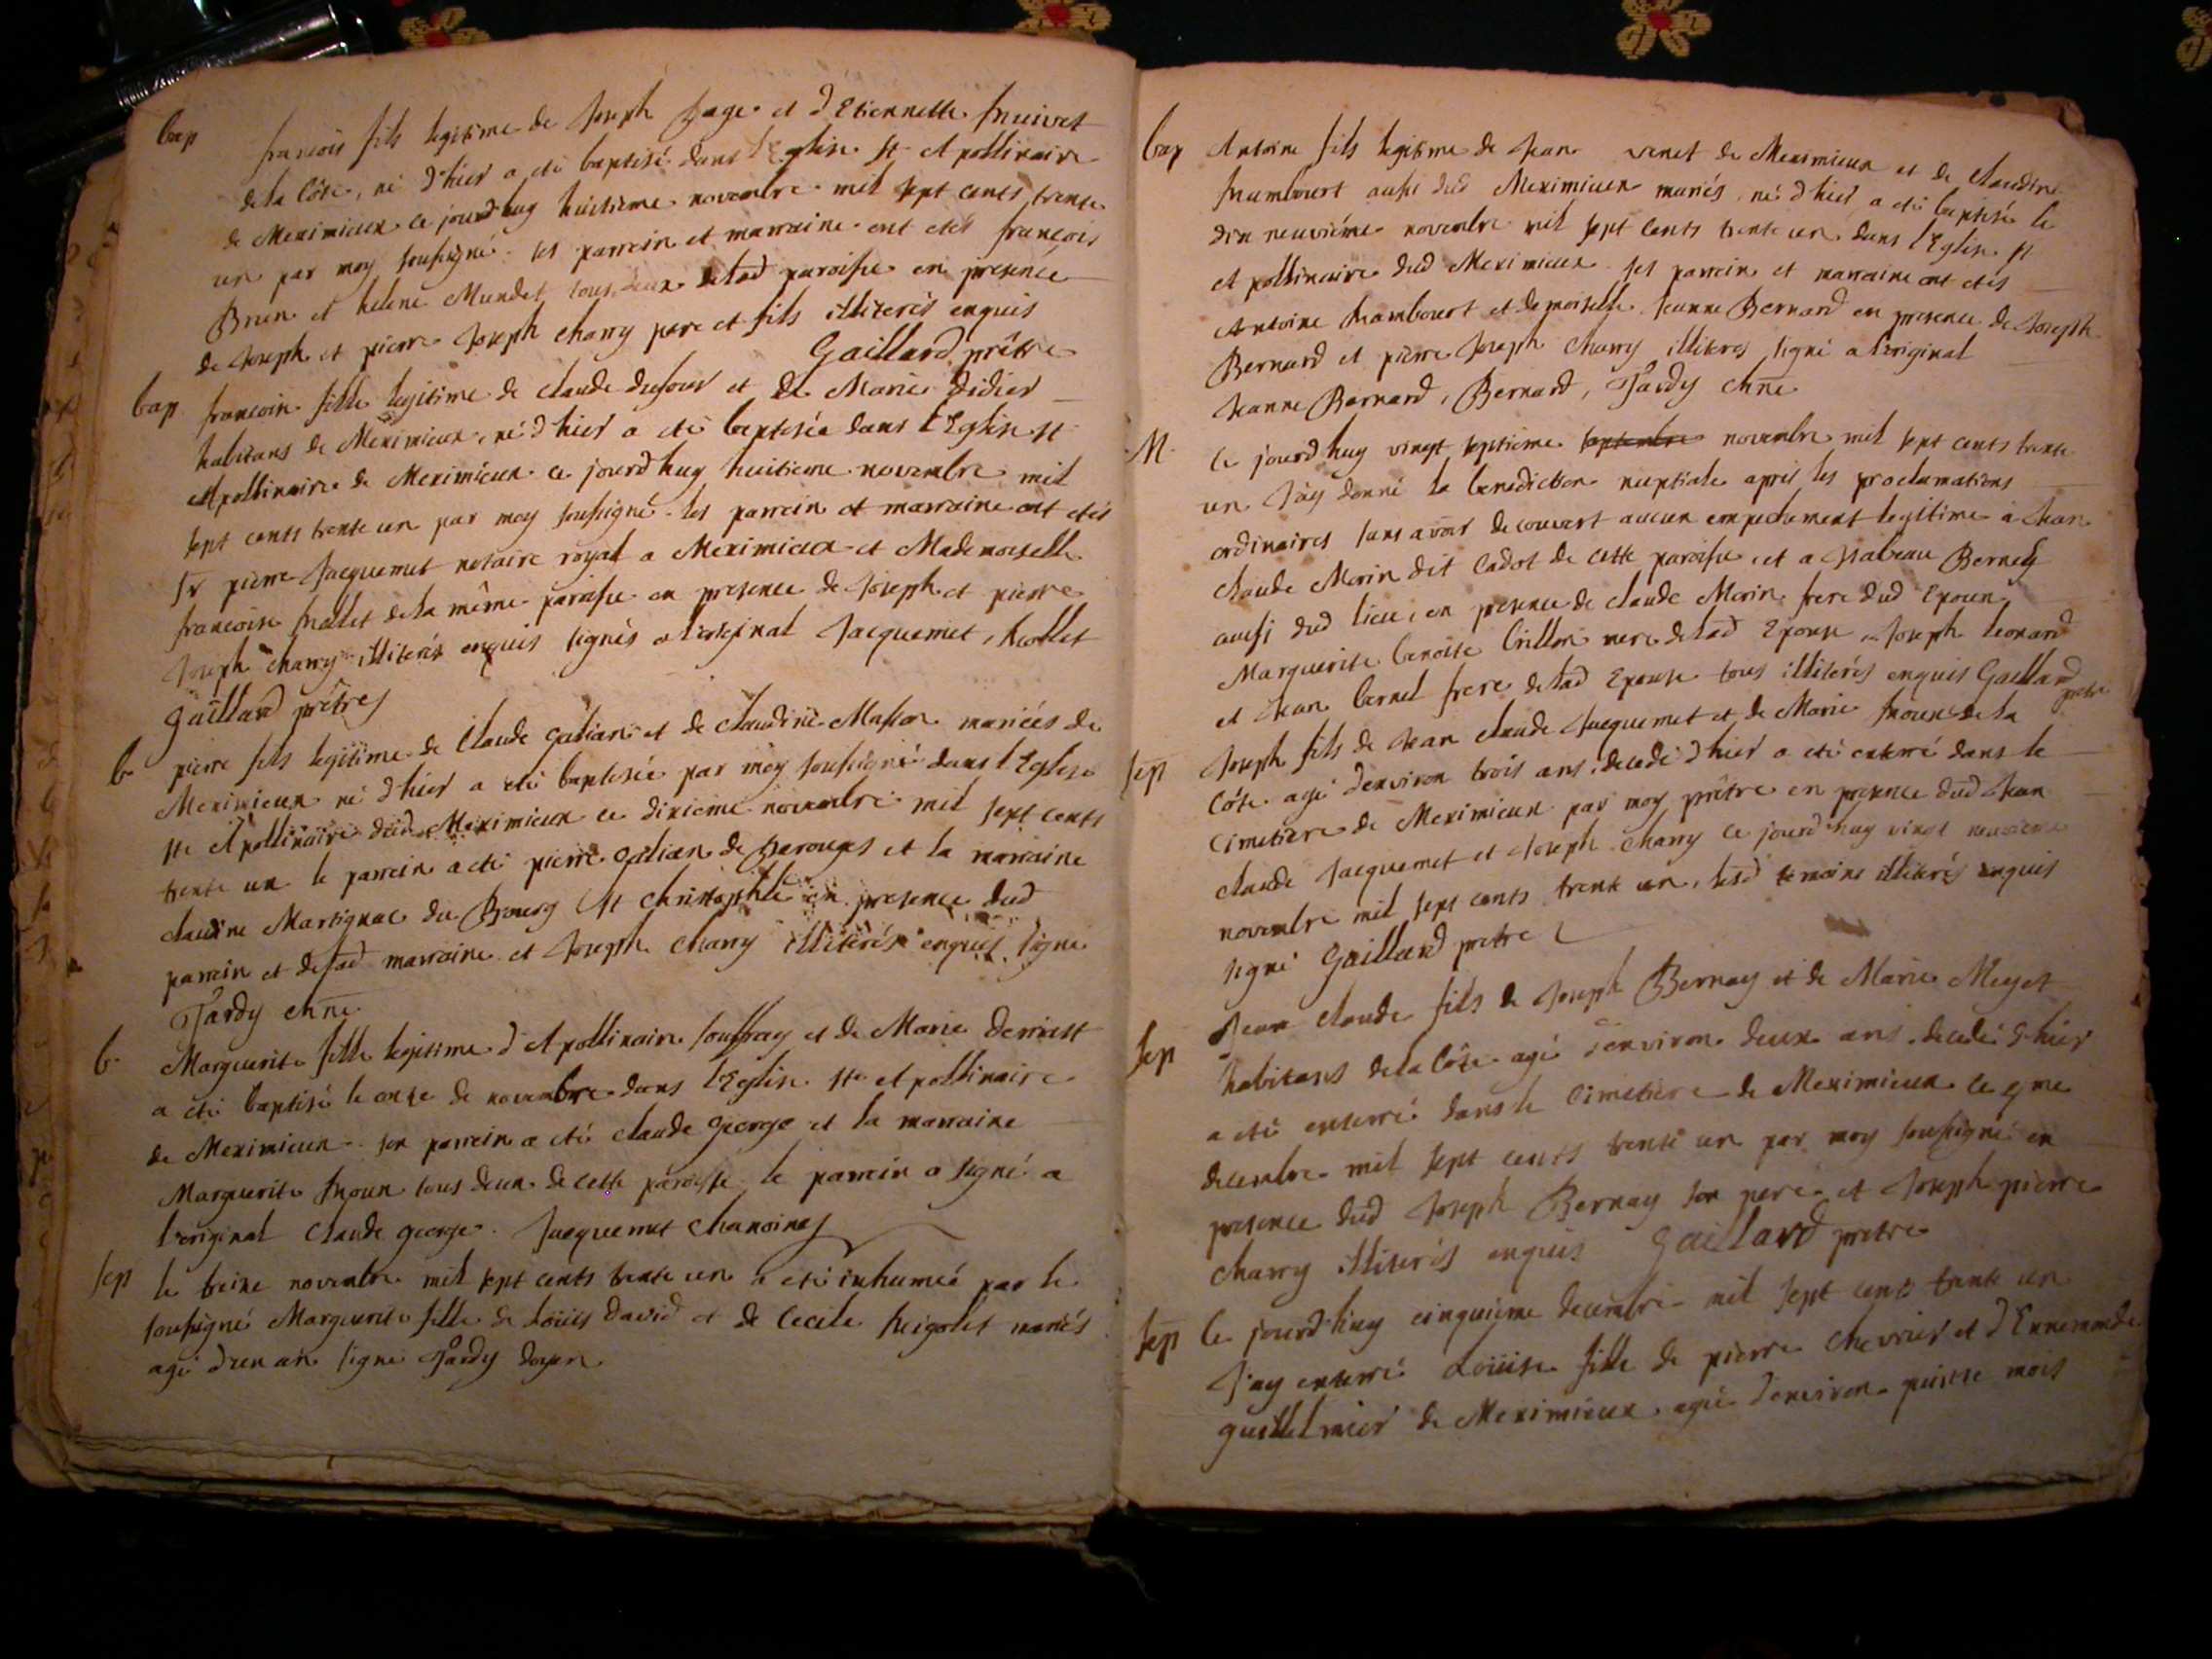 bap francois fils legitime de Joseph page et d'Etiennette
de la Côte, né d'hier a eté baptisé dans l'Eglise st Apollinaire
de Meximieux ce jourd'huy huitieme novembre mil sept cents trente
un par moy soussigné. ses parrein et marraine ont etés françois
Brun et helene Mundet tous deux de lad paroisse en presence
de Joseph et pierre Joseph charry pere et fils illiterés enquis
Gaillard prêtre
bap francoise fille legitime de claude dufour et de Marie Didier
habitans de Meximieux, né d'hier a eté baptisée dans l'Eglise st
Apollinaire de Meximieux ce jourd'huy huitieme novembre mil
sept cents trente un par moy soussigné. les parrein et marraine ont etés
sr pierre Jacquemet notaire royal a Meximieux et Mademoiselle
francoise de la même paroisse en presence de Joseph et pierre
Joseph charry illiterés enquis signés a l'original Jacquemet,
Gaillard prêtres
b pierre fils legitime de Claude galian et de claudine Masson mariés de
Meximieux né d'hier a eté baptisée par moy soussigné dans l'Eglise
ste Apollinaire dud Meximieux ce dixieme novembre mil sept cents
trente un le parrein a eté pierre galian de perouges et la marraine
claudine Martignac du Bourg st christophle en presence dud
parrein et de lad marraine et Joseph charry illiterés enquis signe
Tardy chne
b. Marguerite fille legitime d'Apollinaire souffray et de Marie
a eté baptisé le onze de novembre dans l'Eglise ste Apollinaire
de Meximieux. son parrein a eté claude george et la marraine
Marguerite tous deux de cette paroisse le parrein a signé a
l'original Claude george. Jacquemet chanoines
sep le treize novembre mil sept cents trente un a eté inhumeé par le
soussigné Marguerite fille de Loüis David et de Cecile mariés
agé d'un an signé Tardy doyen
bap Antoine fils legitime de Jean venet de Meximieux et de claudine
aussi dud Meximieux mariés, né d'hier a eté baptisé le
dix neuviéme novembre mil sept cents trente un dans l'Eglise st
Apollinaire dud Meximieux. ses parrein et marraine ont etés
Antoine et demoiselle Jeanne Bernard en presence de Joseph
Bernard et pierre Joseph charry illiteres signé a l'original
Jeanne Bernard, Bernard, Tardy chne
M. Ce jourd'huy vingt septieme septembre novembre mil sept cents trente
un J'ay donné la benediction nuptiale aprés les proclamations
ordinaires sans avoir decouvert aucun empechement legitime a Jean
claude Morin dit Cadot de cette paroisse, et a Isabeau Bernet
aussi dud lieu, en presence de claude Morin frere dud Epoux,
Marguerite benoite brillon mere de lad Epouse, Joseph leonard
et Jean bernet frere de lad Epouse tous illiterés enquis Gaillard
prêtre
sep Joseph fils de Jean claude Jacquemet et de Marie de la
Côte agé d'environ trois ans, decedé d'hier a eté enterré dans le
Cimetiere de Meximieux par moy prêtre en presence dud Jean
claude Jacquemet et Joseph charry ce jourd'huy vingt neuvieme
novembre mil sept cents trente un, lesd temoins illiterés enquis
signé Gaillard pretre
sep Jean claude fils de Joseph Bernay et de Marie Meget
habitans de la Côte agé d'environ deux ans. decedé d'hier
a eté enterré dans le Cimetiere de Meximieux le
decembre mil sept cents trente un par moy soussigné en
presence dud Joseph Bernay son pere et Joseph pierre
charry illiterés enquis Gaillard pretre
sep Ce jourd'huy cinquieme decembre mil sept cents trente un
J'ay enterré Loüise fille de pierre chevrier et d'Ennemonde
guillelmier de Meximieux agée d'environ quinze mois